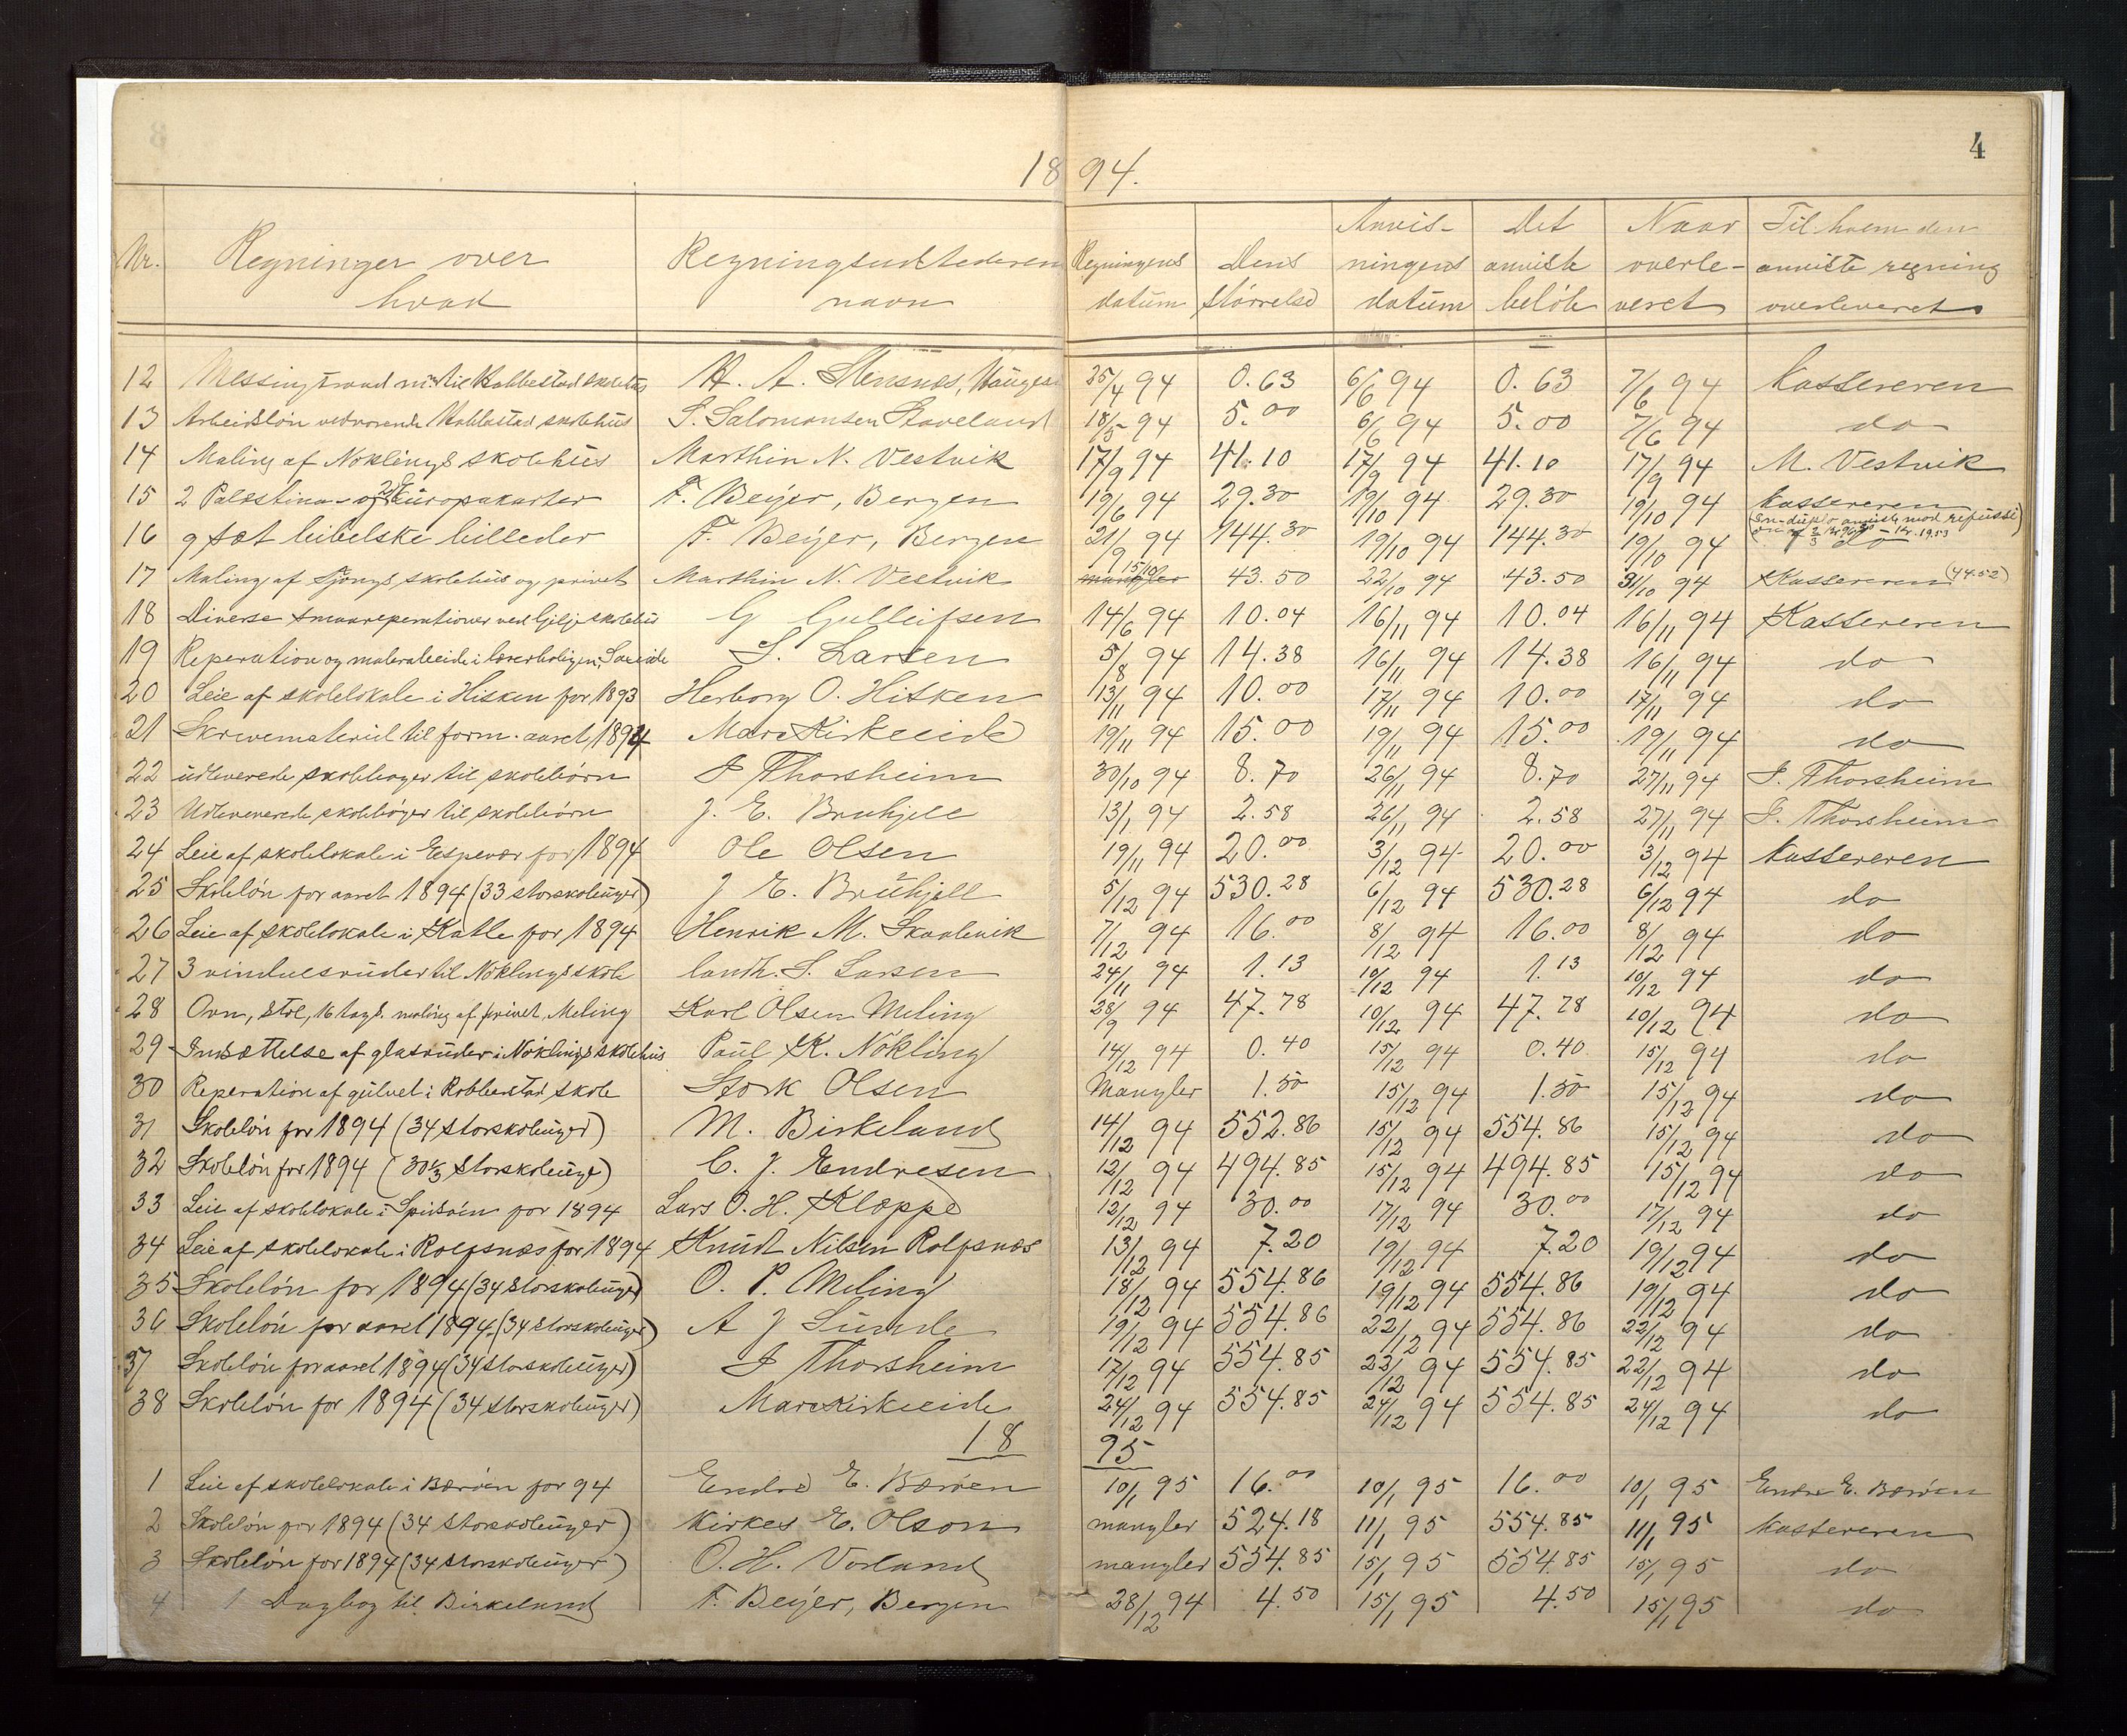 4
18 94.
Nr. Regninger over hvad Regningsudstederens navn Regningens datum Dens størrelse Anvisningens datum Det anviste beløb Naar overleveret Til hvem den anviste regning overleveret
12 Messingtraad m.m. til Robbestad skolehus H. A. Stensnæs, Hauges 25/4 94 0.63 6/6 94 0.63 7/6 94 Kassereren
13 Arbeidsløn vedvarende Robbestad skolehus S. Salomonsen Staveland 18/5 94 5.00 6/6 94 5.00 7/6 94 do
14 Maling af Nøklings skolehus Marthin N. Vestvik 17/9 94 41.10 17/9 94 41.10 17/9 94 M. Vestvik
15 2 Palæstina- og 2 Europakarter F. Beijer, Bergen 19/6 94 29.30 19/10 94 29.30 19/10 94 Kassereren
16 9 sæt bibelske billeder F. Beijer, Bergen 21/9 94 144.30 19/10 94 144.30 19/10 94 do (In-duplo anviste mod refusion af 2/3 Kr. 96.20 - Kr. 19.53)
17 Maling af Fjongs skolehus og privet Marthin N. Vestvik mangler 15/10 43.50 22/10 94 43.50 31/10 94 Kassereren (44.52)
18 Diverse smaareperationer ved Gilje skolehus G Gulleifsen 14/6 94 10.04 16/11 94 10.04 16/11 94 Kassereren
19 Reperation og malerabeide i lærerboligen, Sæeide S. Larsen 5/8 94 14.38 16/11 94 14.38 16/11 94 do
20 Leie af skolelokale i Hisken for 1893 Herborg O. Hisken 13/11 94 10.00 17/11 94 10.00 17/11 94 do
21 Skrivemateriel til form. aaret, 1894 Marc Kirkeeide 19/11 94 15.00 19/11 94 15.00 19/11 94 do
22 udleverede skolebøger til skolebørn I Thorsheim 30/10 94 8.70 26/11 94 8.70 27/11 94 I. Thorsheim
23 Udleverede skolebøger til skolebørn J. E. Bruhjell 13/1 94 2.58 26/11 94 2.58 27/11 94 I. Thorsheim
24 Leie af skolelokale i Espevær for 1894 Ole Olsen 19/11 94 20.00 3/12 94 20.00 3/12 94 Kassereren
25 Skoleløn for aaret 1894 (33 storskoleuger) J E. Bruhjell 5/12 94 530.28 6/12 94 530.28 6/12 94 do
26 Leie af skolelokale i Katle for 1894 Henrik M. Skaalevik 7/12 94 16.00 8/12 94 16.00 8/12 94 do
27 3 vinduesruder til Nøklings skole landh. S. Larsen 24/11 94 1.13 10/12 94 1.13 10/12 94 do
28 Ovn, stol, 16 tags. maling af privet, Meling Karl Olsen Meling 28/9 94 47.78 10/12 94 47.78 10/12 94 do
29 Indsættelse af glasruder i Nøklings skolehus Paul K. Nøkling 14/12 94 0.40 15/12 94 0.40 15/12 94 do
30 Reperation af gulvet i Robbestad skole Stork Olsen Mangler 1.50 15/12 94 1.50 15/12 94 do
31 Skoleløn for 1894 (34 storskoleuger) M. Birkeland 14/12 94 552.86 15/12 94 554.86 15/12 94 do
32 Skoleløn for 1894 (30 1/3 storskoleuge) C. J. Endresen 12/12 94 494.85 15/12 94 494.85 15/12 94 do
33 Leie af skolelokale i Spidsøen for 1894 Lars O. H. Kloppe 12/12 94 30.00 17/12 94 30.00 17/12 94 do
34 Leie af skolelokale i Rolfsnæs for 1894 Knudt Nilsen Rolfsnæs 13/12 94 7.20 19/12 94 7.20 19/12 94 do
35 Skoleløn for 1894 (34 storskoleuger) O. P. Meling 18/12 94 554.86 19/12 94 554.86 19/12 94 do
36 Skoleløn for aaret 1894 (34 storskoleuger) A J Sunde 19/12 94 554.86 22/12 94 554.86 22/12 94 do
37 Skoleløn for aaret 1894 (34 storskoleuger) I Thorsheim 17/12 94 554.85 22/12 94 554.85 22/12 94 do
38 Skoleløn for 1894 (34 storskoleuger) Marc Kirkeeide 24/12 94 554.85 24/12 94 554.85 24/12 94 do
18 95
1 Leie af skolelokale i Bærøen for 94 Endre E. Bærøen 10/1 95 16.00 10/1 95 16.00 10/1 95 Endre E. Bærøen
2 Skoleløn for 1894 (34 storskoleuger) Kirkes E. Olson mangler 524.18 11/1 95 554.85 11/1 95 Kassereren
3 Skoleløn for 1894 (34 storskoleuger) O. H. Vorland mangler 554.85 15/1 95 554.85 15/1 95 do
4 1 Dagbog til Birkeland F. Beijer, Bergen 28/12 94 4.50 15/1 95 4.50 15/1 95 do